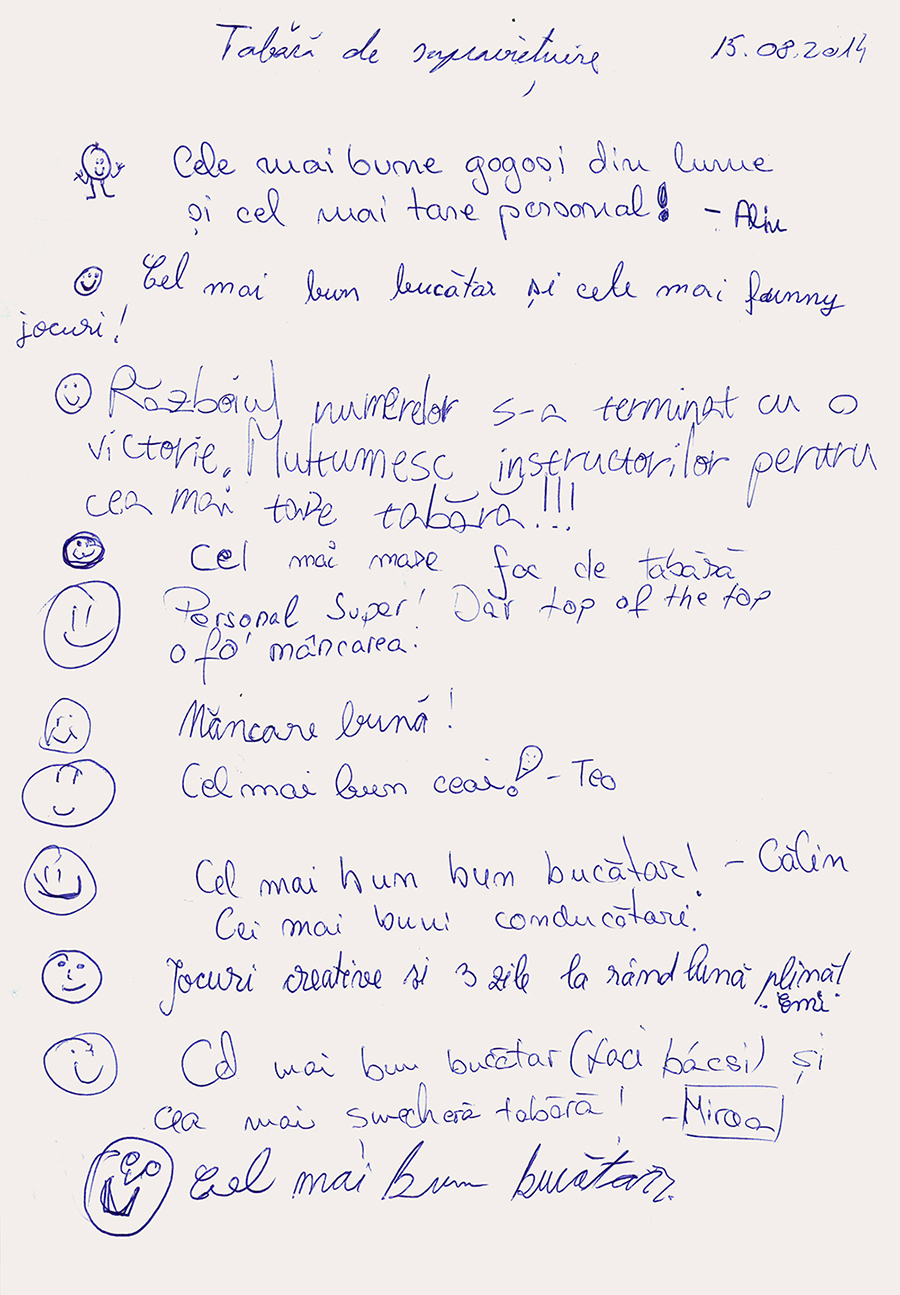 Tabără de supraviețuire 15.08.2014
Cele mai bune gogoși din lume
și cel mai tare personal! - Alin
Cel mai bun bucătar și cele mai funny
jocuri!
Razboiul numerelor s-a terminat cu o
victorie. Multumesc instructorilor pentru
cea mai tare tabără!!!
Cel mai mare foc de tabără
Personal Super! Dar top of the top
o fo' mâncarea!
Mâncare bună!
Cel mai bun ceai! - Teo
Cel mai bun bun bucătar! - Călin
Cei mai buni conducători.
Jocuri creative si 3 zile la rând lună plină!
Emi
Cel mai bun bucătar (Laci bácsi) și
cea mai smecheră tabără! - Mircea
Cel mai bun bucătar.